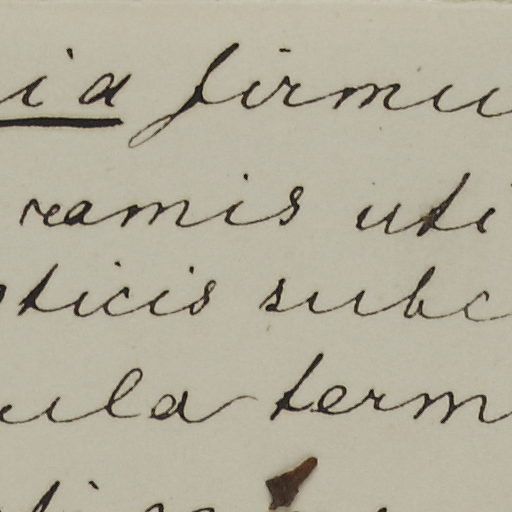 ia firmu
ramis uti
ticis subc
ula term